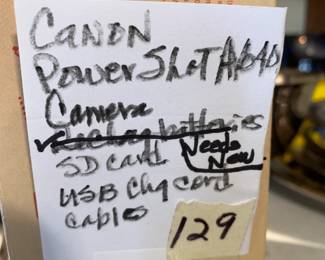 CANON
PowerShot A640
Camera
batteries
SD card Needs New
USB Chg cord
cables
129